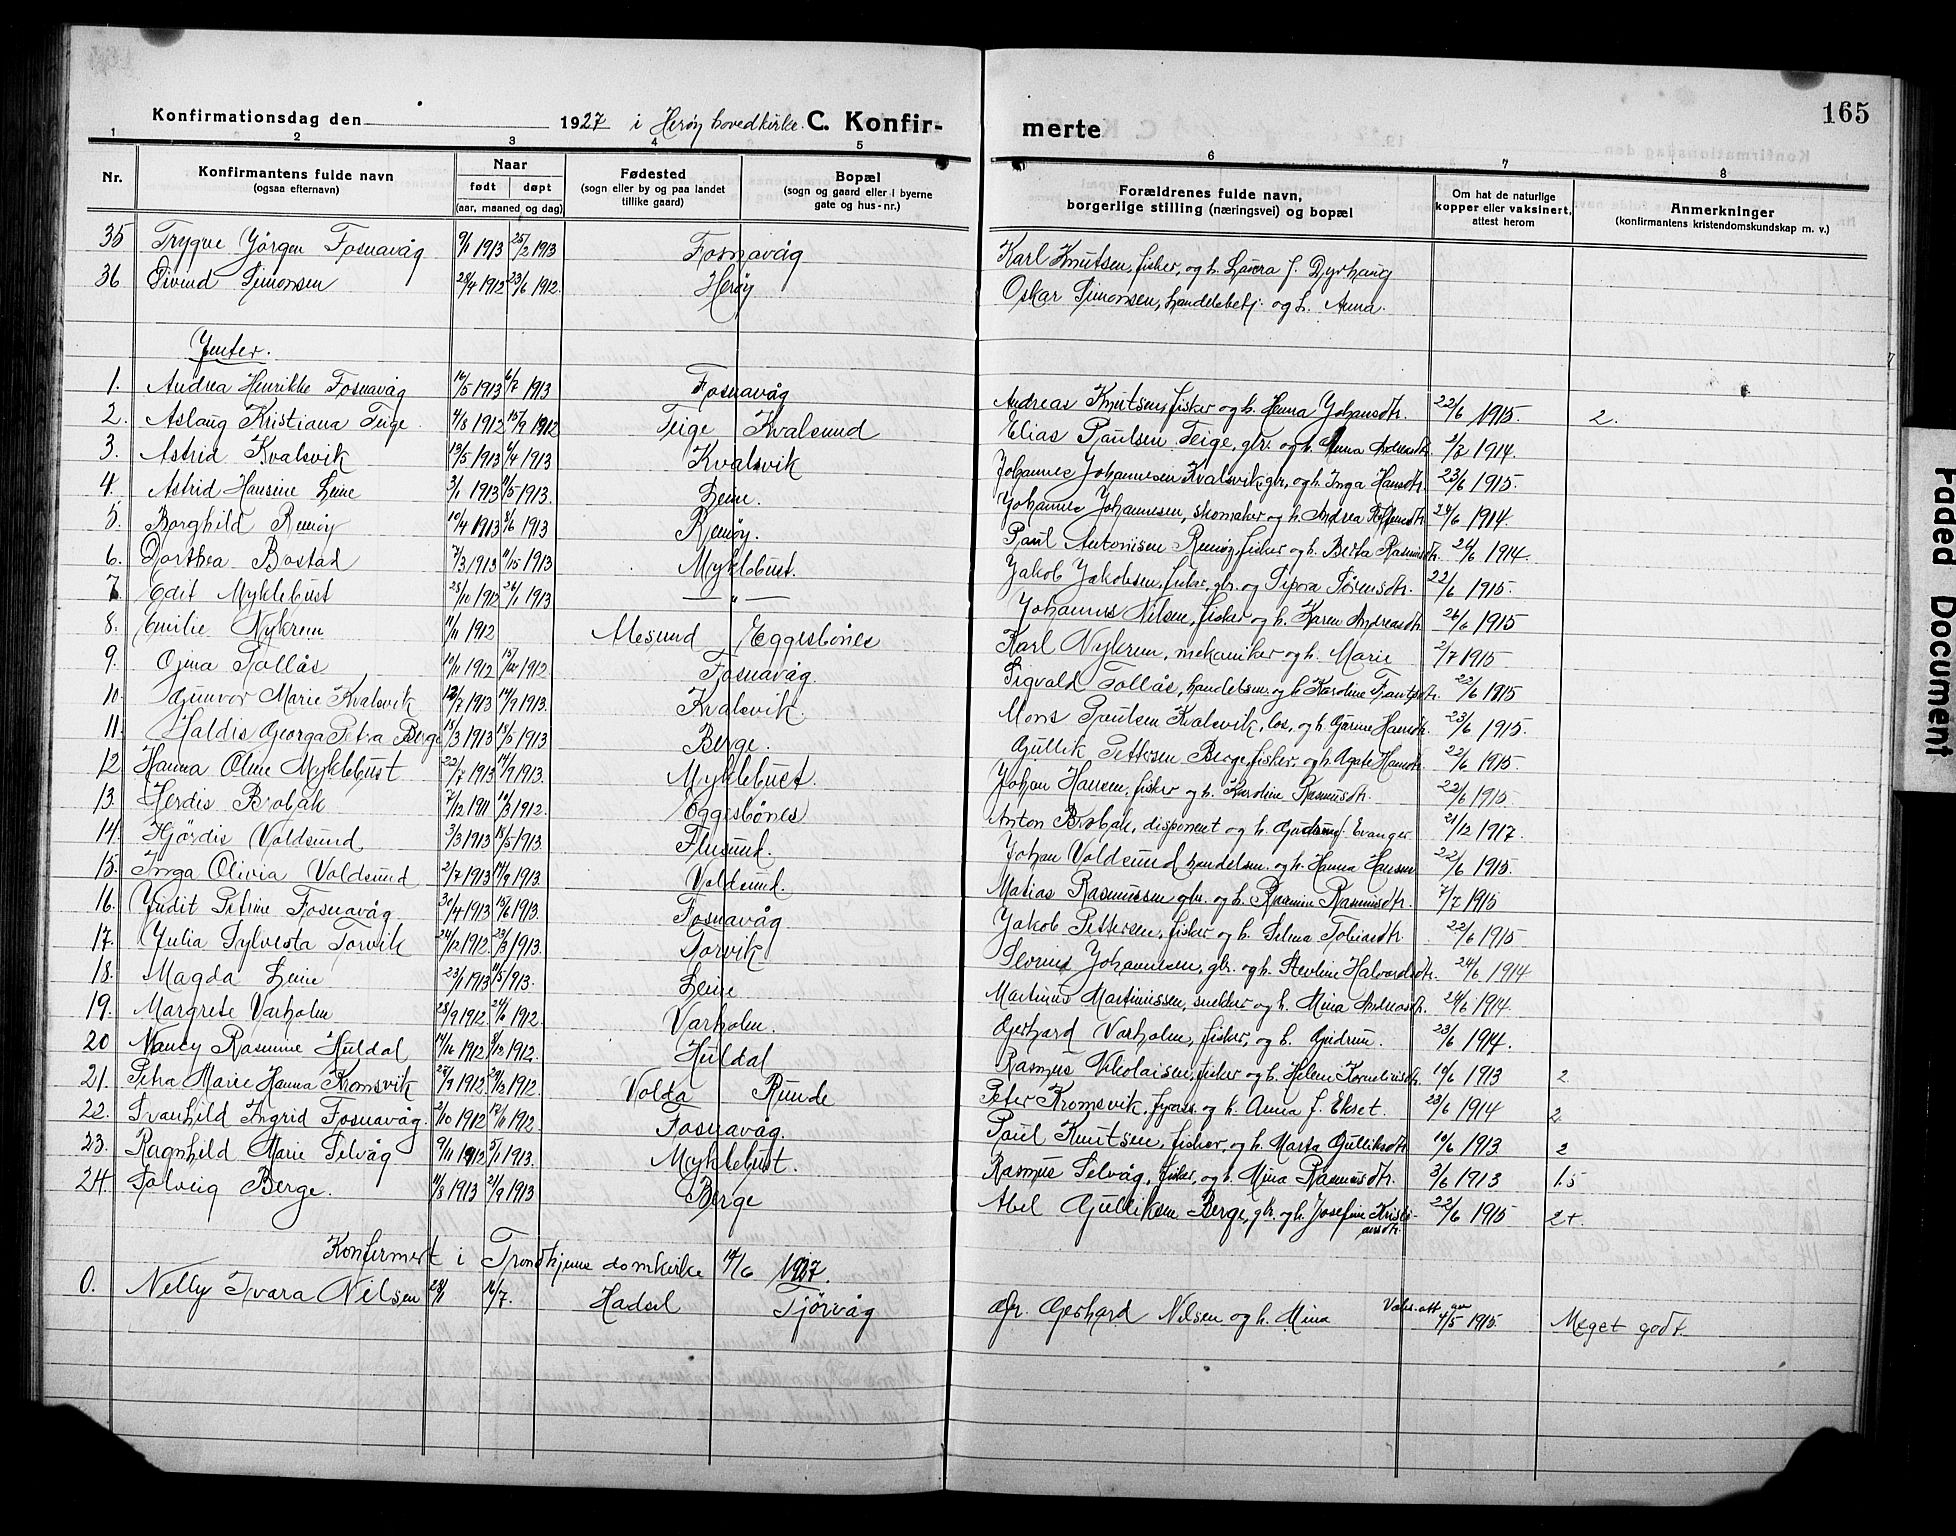 165
Konfirmationsdag den 1927 i Herøy hovedkirke. C. Konfirmerte
1 2 3 4 5 6 7 8
Nr. Konfirmantens fulde navn (ogsaa efternavn) Naar født døpt (aar, maaned og dag) Fødested (sogn eller by og paa landet tillike gaard) Bopæl (sogn og gaard eller i byerne gate og hus-nr.) Forældrenes fulde navn, borgerlige stilling (næringsvei) og bopæl Om hat de naturlige kopper eller vaksinert, attest herom Anmerkninger (konfirmantens kristendomskundskap m. v.)
35 Trygve Jörgen Fosnavåg 9/1 1913 25/2 1913 Fosnavåg Karl Knutsen, fisker, og h. Laura f. Dyrhaug
36 Eivind Simonsen 28/4 1912 23/6 1912. Herøy Oskar Simonsen, handelsbetj. og h. Anna.
Jenter.
1. Andrea Henrikke Fosnavåg 16/5 1913 6/7 1913 Fosnavåg Andreas Knutsen, fisker og h. Hanna Johansdtr. 22/6 1915. 2.
2. Aslaug Kristiana Teige 4/8 1912 15/9 1912 Teige Kvalsund Elias Paulsen Teige, gbr. og h. Anna Andreasdtr. 2/2 1914.
3. Astrid Kvalsvik 13/5 1913 6/4 1913 Kvalsvik Johannes Johannesen Kvalsvik, gbr, og h. Inga Hansdtr. 23/6 1915.
4. Astrid Hansine Leine 3/1 1913 11/5 1913. Leine. Johannes Johannesen, skomaker og h. Andrea 24/6 1914.
5. Borghild Remöy 10/4 1913 8/6 1913 Remöy. Paul Antonisen Remöy, fisker og h. Berta Rasmusdtr. 24/6 1914.
6. Dorthea Bostad 7/3 1913 11/5 1913 Myklebust. Jakob Jakobsen, fisker, gbr. og Sipora Sörensdtr. 22/6 1915.
7. Edit Myklebust 25/10 1912 26/1 1913 — „ — Johannes Nilsen, fisker og h. Karen Andreasdtr. 26/6 1915
8. Emilie Nykrem 11/11 1912 Alesund Eggesbönes Karl Nykrem, mekaniker og h. Marie 2/7 1915
9. Gina Tollås 10/11 1912 15/12 1912. Fosnavåg. Sigvald Tollås, handelsm. og h. Karoline Frantsdtr. 22/6 1915
10. Gunvor Marie Kvalsvik 12/7 1913 14/9 1913. Kvalsvik. Mons Paulsen Kvalsvik, los, og h. Gurine Hansdtr. 23/6 1915.
11. Haldis Georga Petra Berge 18/3 1913 18/5 1913 Berge. Gullik Pettersen Berge, fisker, og h. Agate Hansdtr. 22/6 1915.
12. Hanna Oline Myklebust 22/7 1913 14/9 1913. Myklebust. Johan Hansen, fisker og h. Karoline Rasmusdtr. 22/6 1915
13. Herdis Brobak 7/12 1911 10/3 1912. Eggesbönes Anton Brobak, disponent og h. Gudrun f. Evanger 21/12 1917.
14. Hjördis Voldsund 3/3 1913 18/5 1913. Flusund. Johan Voldsund handelsm. og h. Hanna Hansen 22/6 1915.
15. Inga Olivia Voldsund 2/7 1913 14/9 1913. Voldsund. Matias Rasmussen gbr. og h. Rasmine Rasmusdtr. 7/7 1915
16. Judit Petrine Fosnavåg 30/4 1913 15/6 1913. Fosnavåg Jakob Pettersen, fisker og h. Selma Tobiasdtr. 22/6 1915
17. Julia Sylvesta Torvik 24/12 1912. 23/3 1913. Torvik Severin Johannesen, gbr. og h. Stevline Halvardsdtr. 24/6 1914
18. Magda Leine 23/1 1913 11/5 1913. Leine Martinus Martinussen, snekker og h. Mina Andreasdtr. 24/6 1914.
19. Margrete Varholm 28/9 1912. 24/6 1912. Varholm. Gerhard Varholm, fisker, og h. Gudrun. 23/6 1914.
20 Nancy Rasmine Huldal 14/10 1912 8/12 1912. Huldal Rasmus Nikolaisen, fisker og h. Helene Korneliusdtr. 10/6 1913 2
21. Petra Marie Hanna Kromsvik 28/9 1912. 29/12 1912. Volda Runde Peter Kromsvik, fyrass. og h. Anna f. Ekset. 23/6 1914 2
22. Svanhild Ingrid Fosnavåg. 2/10 1912 17/11 1912 Fosnavåg. Paul Knutsen, fisker, og h. Marta Gulliksdtr. 10/6 1913 2
23. Ragnhild Marie Selvåg 9/11 1912 5/1 1913. Myklebust. Rasmus Selvåg, fisker, og h. Mina Rasmusdtr. 3/6 1913 1.5
24. Solveig Berge. 11/8 1913 21/9 1913 Berge Abel Gulliksen Berge, gbr. og h. Josefine Kristiansdtr. 22/6 1915 2+.
Konfirmert i Trondhjems domkirke 19/6 1927.
0. Nelly Svara Nilsen 28/1 16/7. Hadsel Tjörvåg Gbr. Gerhard Nilsen og h. Mina Vaks. att av 4/5 1915. Meget godt.
Faded Document